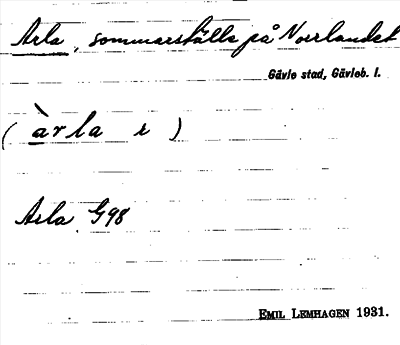 Arla, sommarställe på Norrlandet
Gävle stad, Gävleb. l.
(àrla r)
Arla G98
EMIL LEMHAGEN 1931.